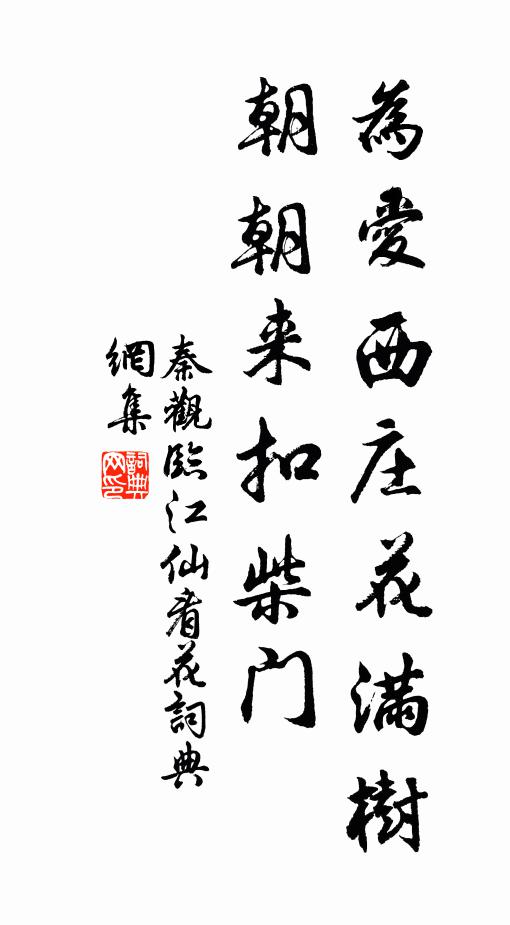 為愛西庄花滿樹
朝朝来扣柴門
秦觀臨江仙看花詞典
網集
詞典網印